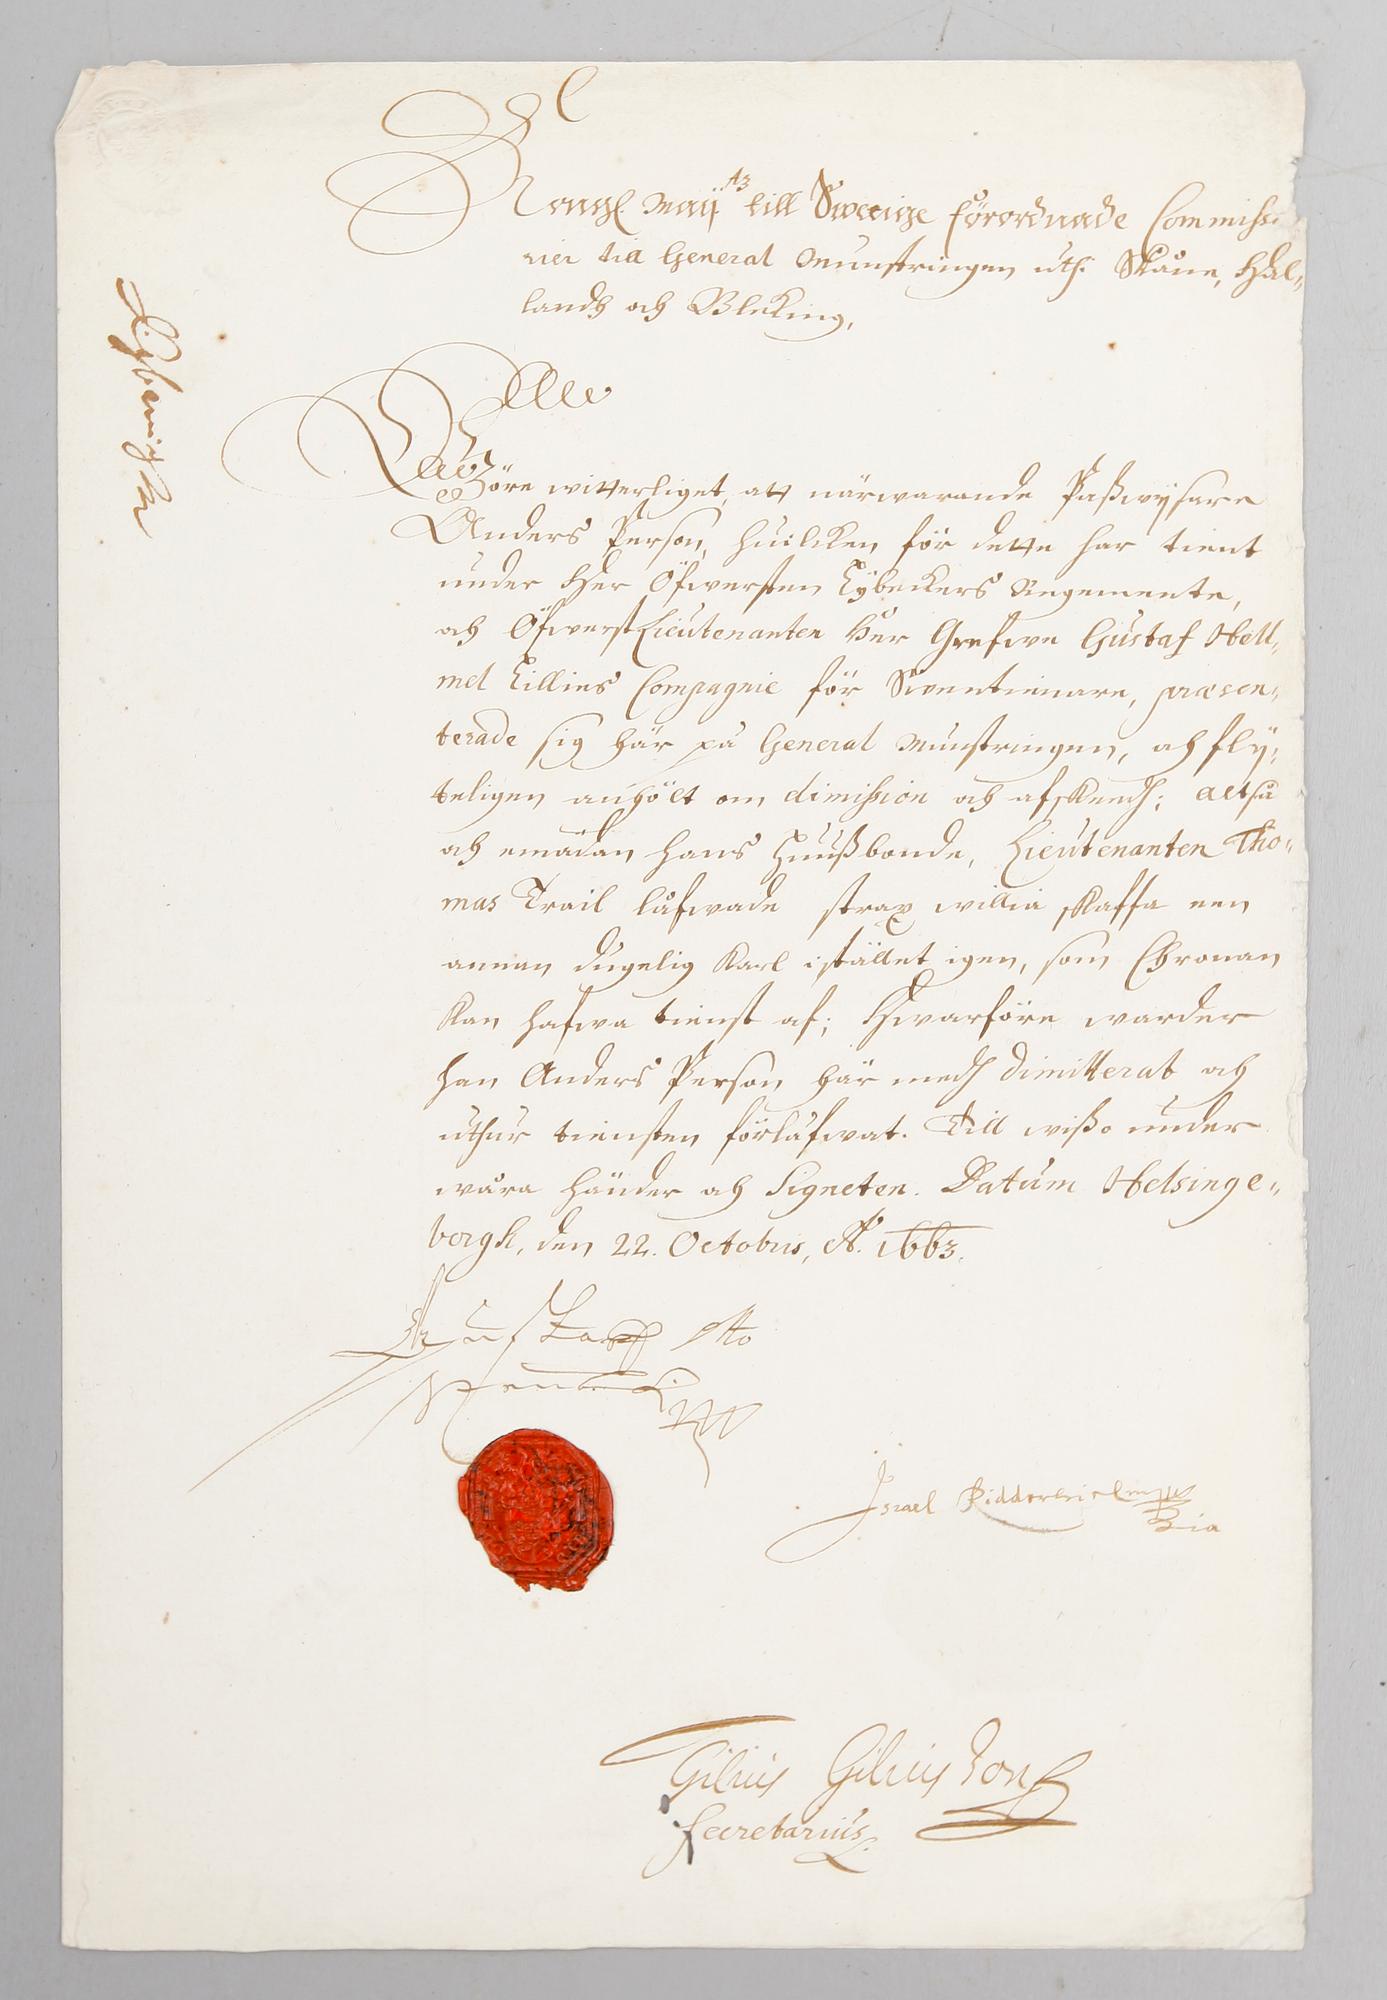 Kongl. Maij:tz till Sweeige förordnade Commissa
rier till General Munstringen uthi Skåne, Hal=
landh och Bleking,
Giöre witterliget, att närwarande Paßwÿsare
Anders Person, huilcken för dette har tient
under Her Öfwersten Lÿbeckers Regemente,
och ÖfwerstLieutenanten Her Grefwe Gustaf Hell=
mel Lillies Compagnie för Swentienare, præsen=
terade sig här på General Munstringen, och flÿ=
teligen anhölt om dimission och afskedh; altså
och emädan hans Huußbonde, Lieutenanten Tho=
mas Trail låfwade strax willia skaffa een
annan dugelig Karl i stället igen, som Chronan
kan hafwa tienst af; Hwarföre warder
han Anders Person här medh dimitterat och
uthur tiensten förlåfwat. Till wißo under
wåra händer och Signeten. Datum Helsinge=
borgh, den 22. Octobris, A:o 1663.
Gustaff Otto
Israel Ridderhielm
Gilius Giliusson
Secretarius